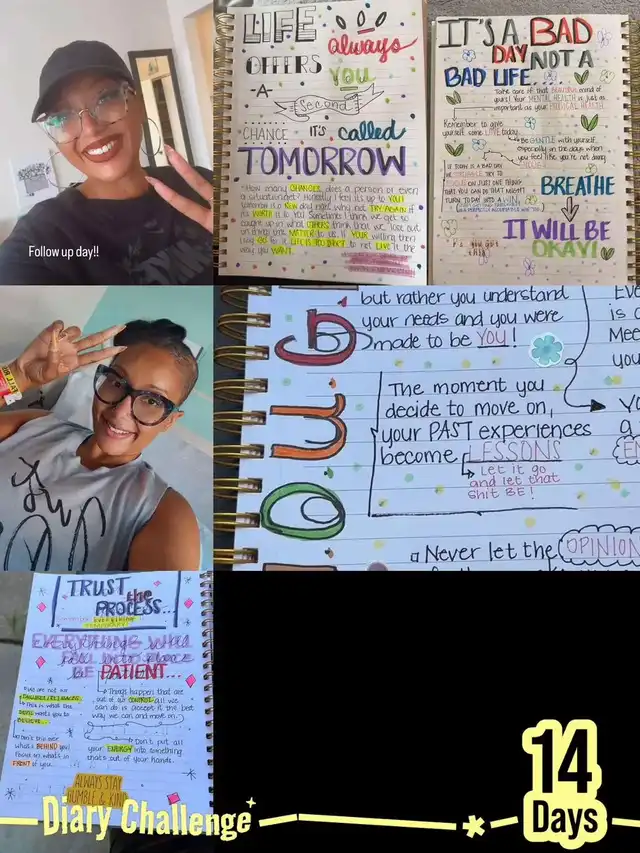 Follow up day!!
LIFE
always
OFFERS
YOU
-A-
Second
CHANCE IT'S called
TOMORROW
How many CHANCES does a person or even
a situation get? Honestly I feel its up to YOU!
Tomorrow is a NEW day right, why not TRY AGAIN if
its WORTH it to YOU. Sometimes I think we get so
caught up on what OTHERS think that we lose out
on things that MATTER to us. If YOUR willing then
way YOU WANT.
IT'S A BAD
DAY NOT A
BAD LIFE...
Take care of that BEAUTIFUL mind of
yours! Your MENTAL HEALTH is just as
important as your PHYSICAL HEALTH.
Remember to give
yourself some LOVE today.
Be GENTLE with yourself,
Especially on the days when
you feel like you're not doing
ENOUGH.
IF TODAY IS A BAD DAY
ON JUST ONE THING
THAT YOU CAN DO THAT MIGHT
TURN TODAY INTO A WIN.
BREATHE
IT WILL BE
OKAY!
but rather you understand
your needs and you were
made to be YOU!
The moment you
decide to move on,
your PAST experiences
become LESSONS
Let it go
and let that
shit BE!
Never let the OPINION
TRUST the
PROCESS...
EVERYTHING WILL
FALL INTO PLACE
BE PATIENT...
Things happen that are
out of our CONTROL all we
can do is accept it the best
way we can and move on.
Don't trip over
what's BEHIND you!
Focus on what's in
FRONT of you.
Don't put all
your ENERGY into something
that's out of your hands.
ALWAYS STAY
HUMBLE & KIND
Diary Challenge
14
Days